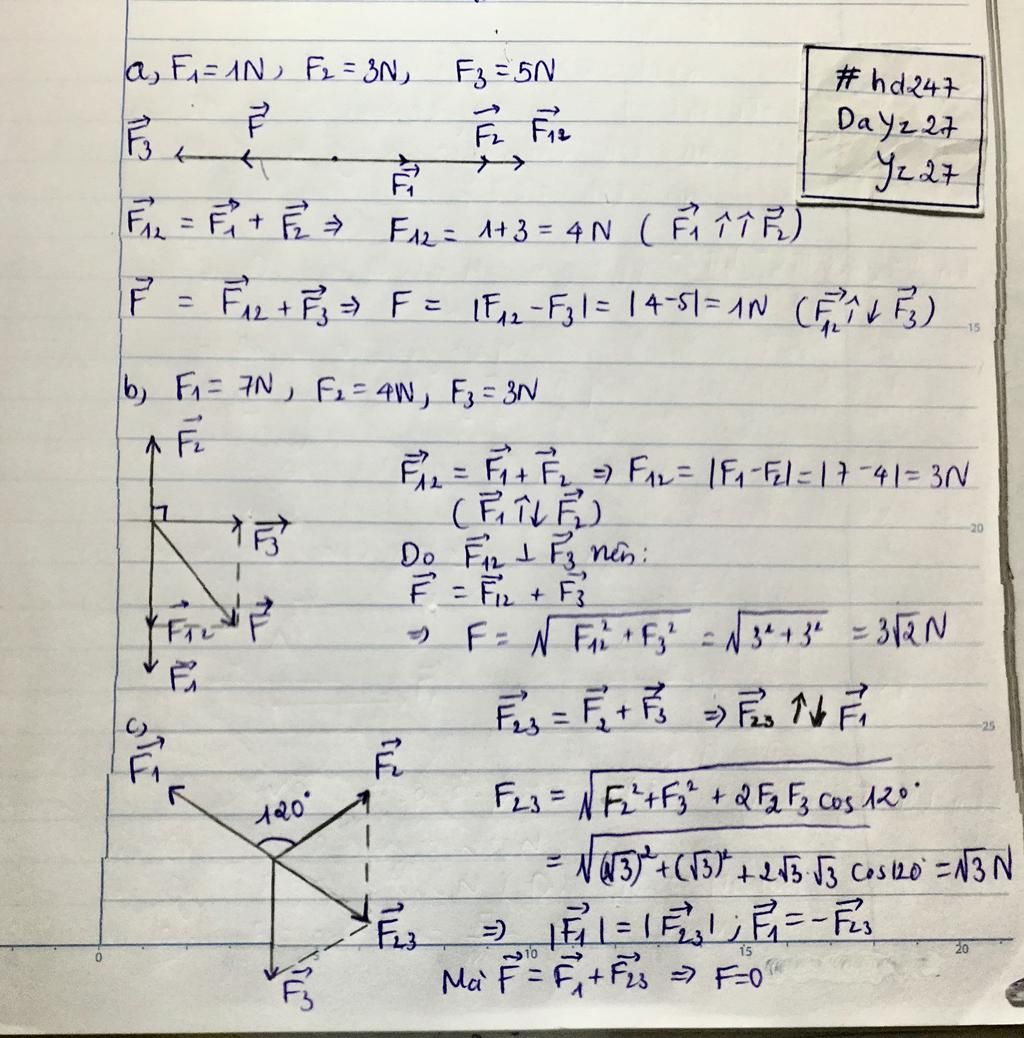 a, F₁ = 1N, F₂ = 3N, F₃ = 5N
# hd247
Dayz27
Yz27
F⃗₃ F⃗ F⃗₁ F⃗₂ F⃗₁₂
F⃗₁₂ = F⃗₁ + F⃗₂ ⇒ F₁₂ = 1+3 = 4N ( F⃗₁ ↑↑ F⃗₂)
F⃗ = F⃗₁₂ + F⃗₃ ⇒ F = |F₁₂ - F₃| = |4-5| = 1N (F⃗₁₂ ↑↓ F⃗₃)
15
b, F₁ = 7N, F₂ = 4N, F₃ = 3N
F⃗₂
F⃗₁₂ = F⃗₁ + F⃗₂ ⇒ F₁₂ = |F₁-F₂| = |7-4| = 3N
( F⃗₁ ↑↓ F⃗₂)
20
F⃗₃
Do F⃗₁₂ ⊥ F⃗₃ nên:
F⃗ = F⃗₁₂ + F⃗₃
F⃗₁₂ F⃗
⇒ F = √(F₁₂² + F₃²) = √(3² + 3²) = 3√2 N
F⃗₁
F⃗₂₃ = F⃗₂ + F⃗₃ ⇒ F⃗₂₃ ↑↓ F⃗₁
25
c,
F⃗₁ F⃗₂
120°
F₂₃ = √(F₂² + F₃² + 2F₂F₃ cos 120°
= √((√3)² + (√3)² + 2√3.√3 cos120°) = √3 N
F⃗₂₃
⇒ |F⃗₁| = |F⃗₂₃| ; F⃗₁ = -F⃗₂₃
0 5 10 15 20
F⃗₃
Mà F⃗ = F⃗₁ + F⃗₂₃ ⇒ F=0